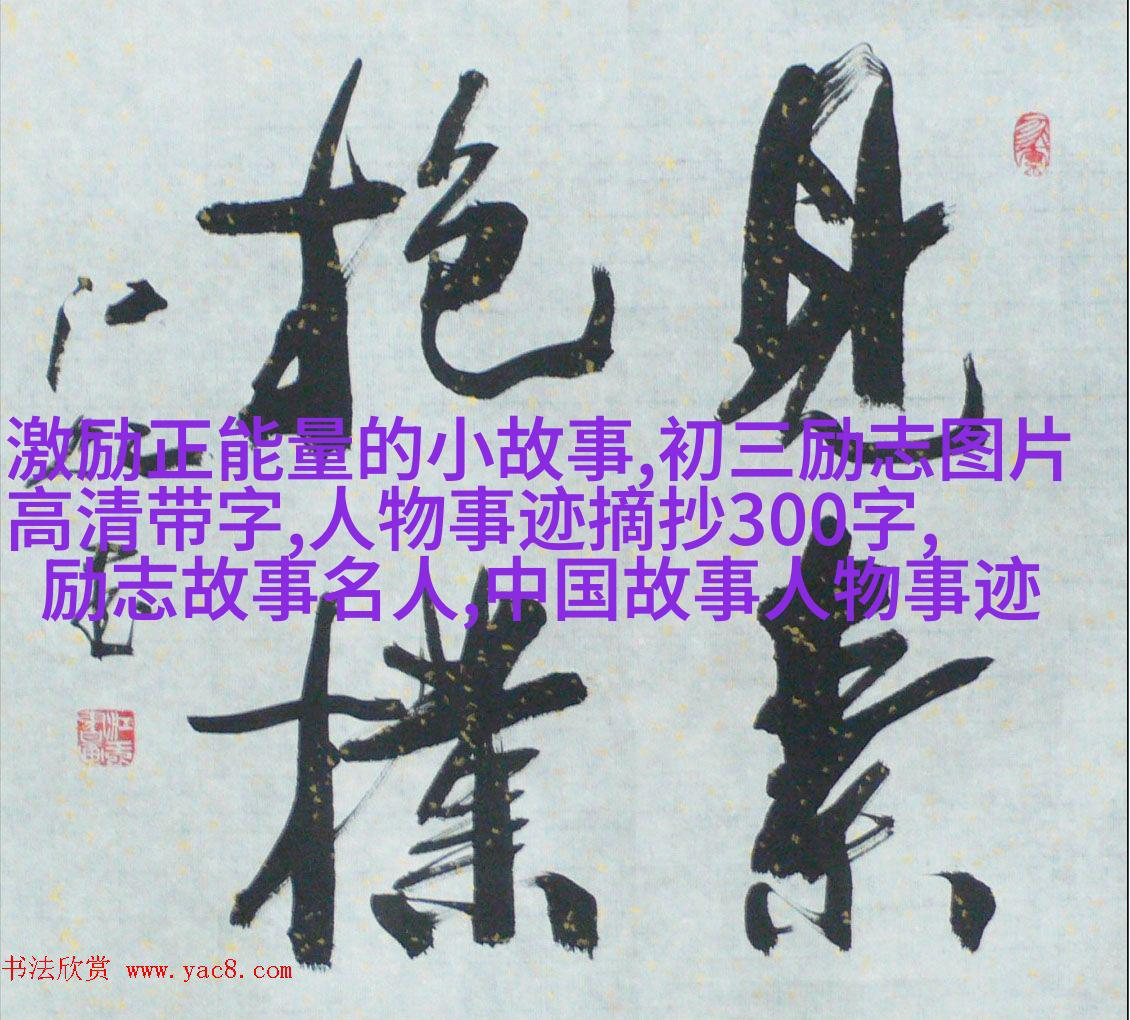 見素
抱樸
激励正能量的小故事,初三励志图片
高清带字,人物事迹摘抄300字,
励志故事名人,中国故事人物事迹
书法欣赏 www.yac8.com